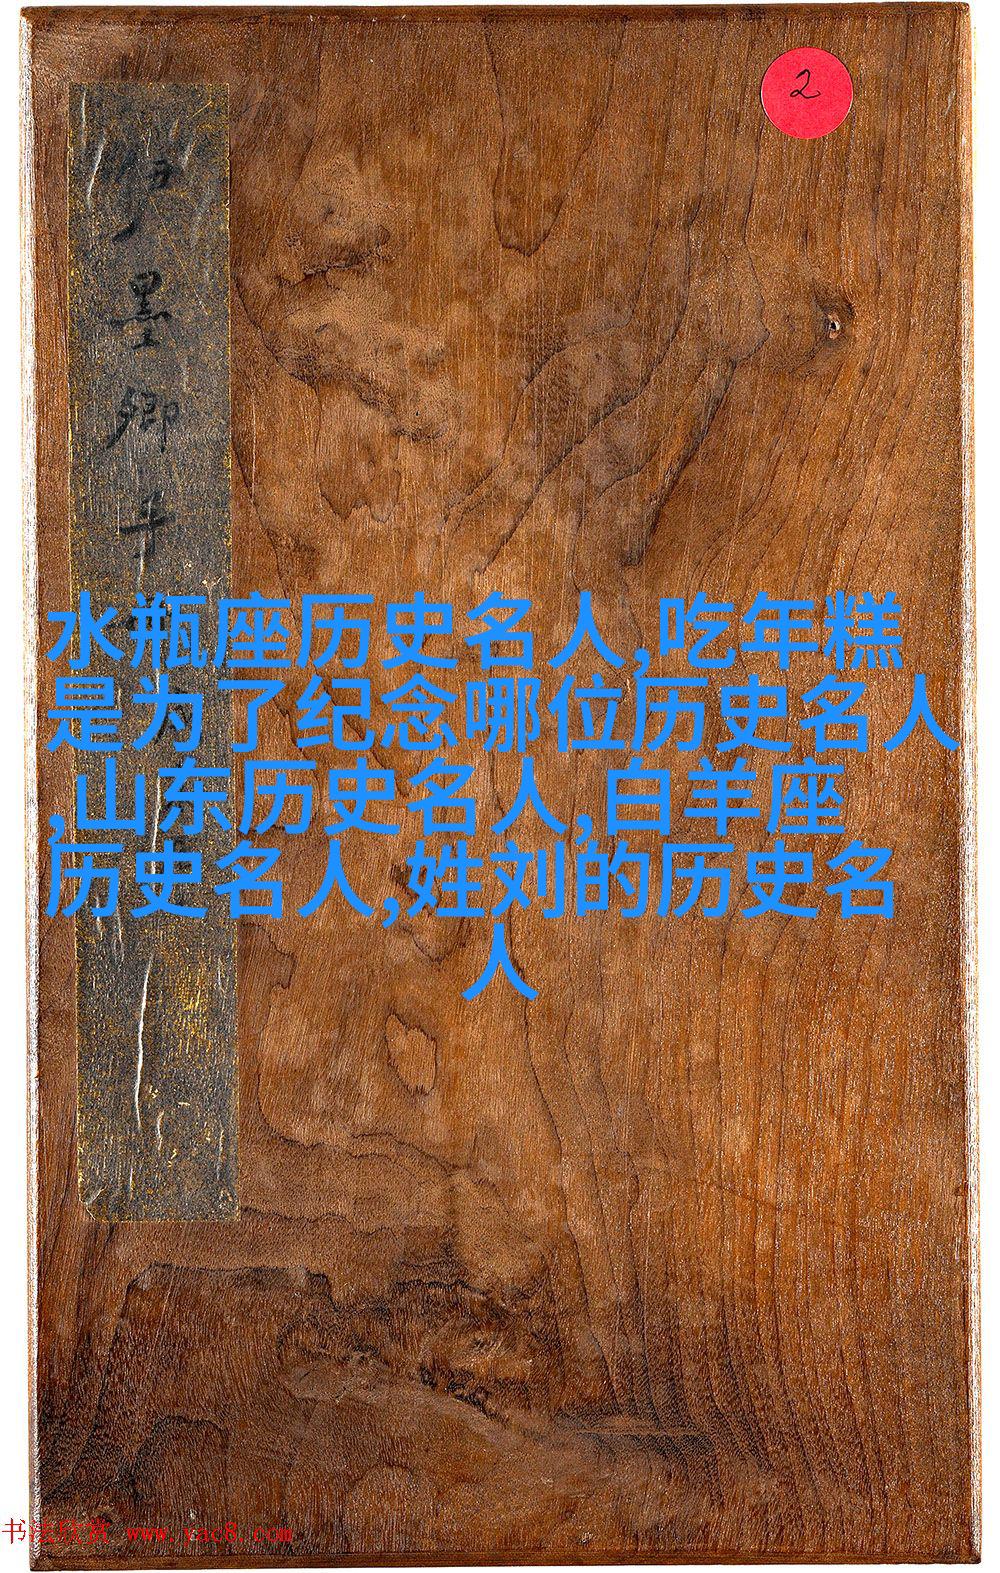 2
墨
卿
手
水瓶座历史名人,吃年糕
是为了纪念哪位历史名人
,山东历史名人,白羊座
历史名人,姓刘的历史名
人
书法欣赏 www.yac8.com